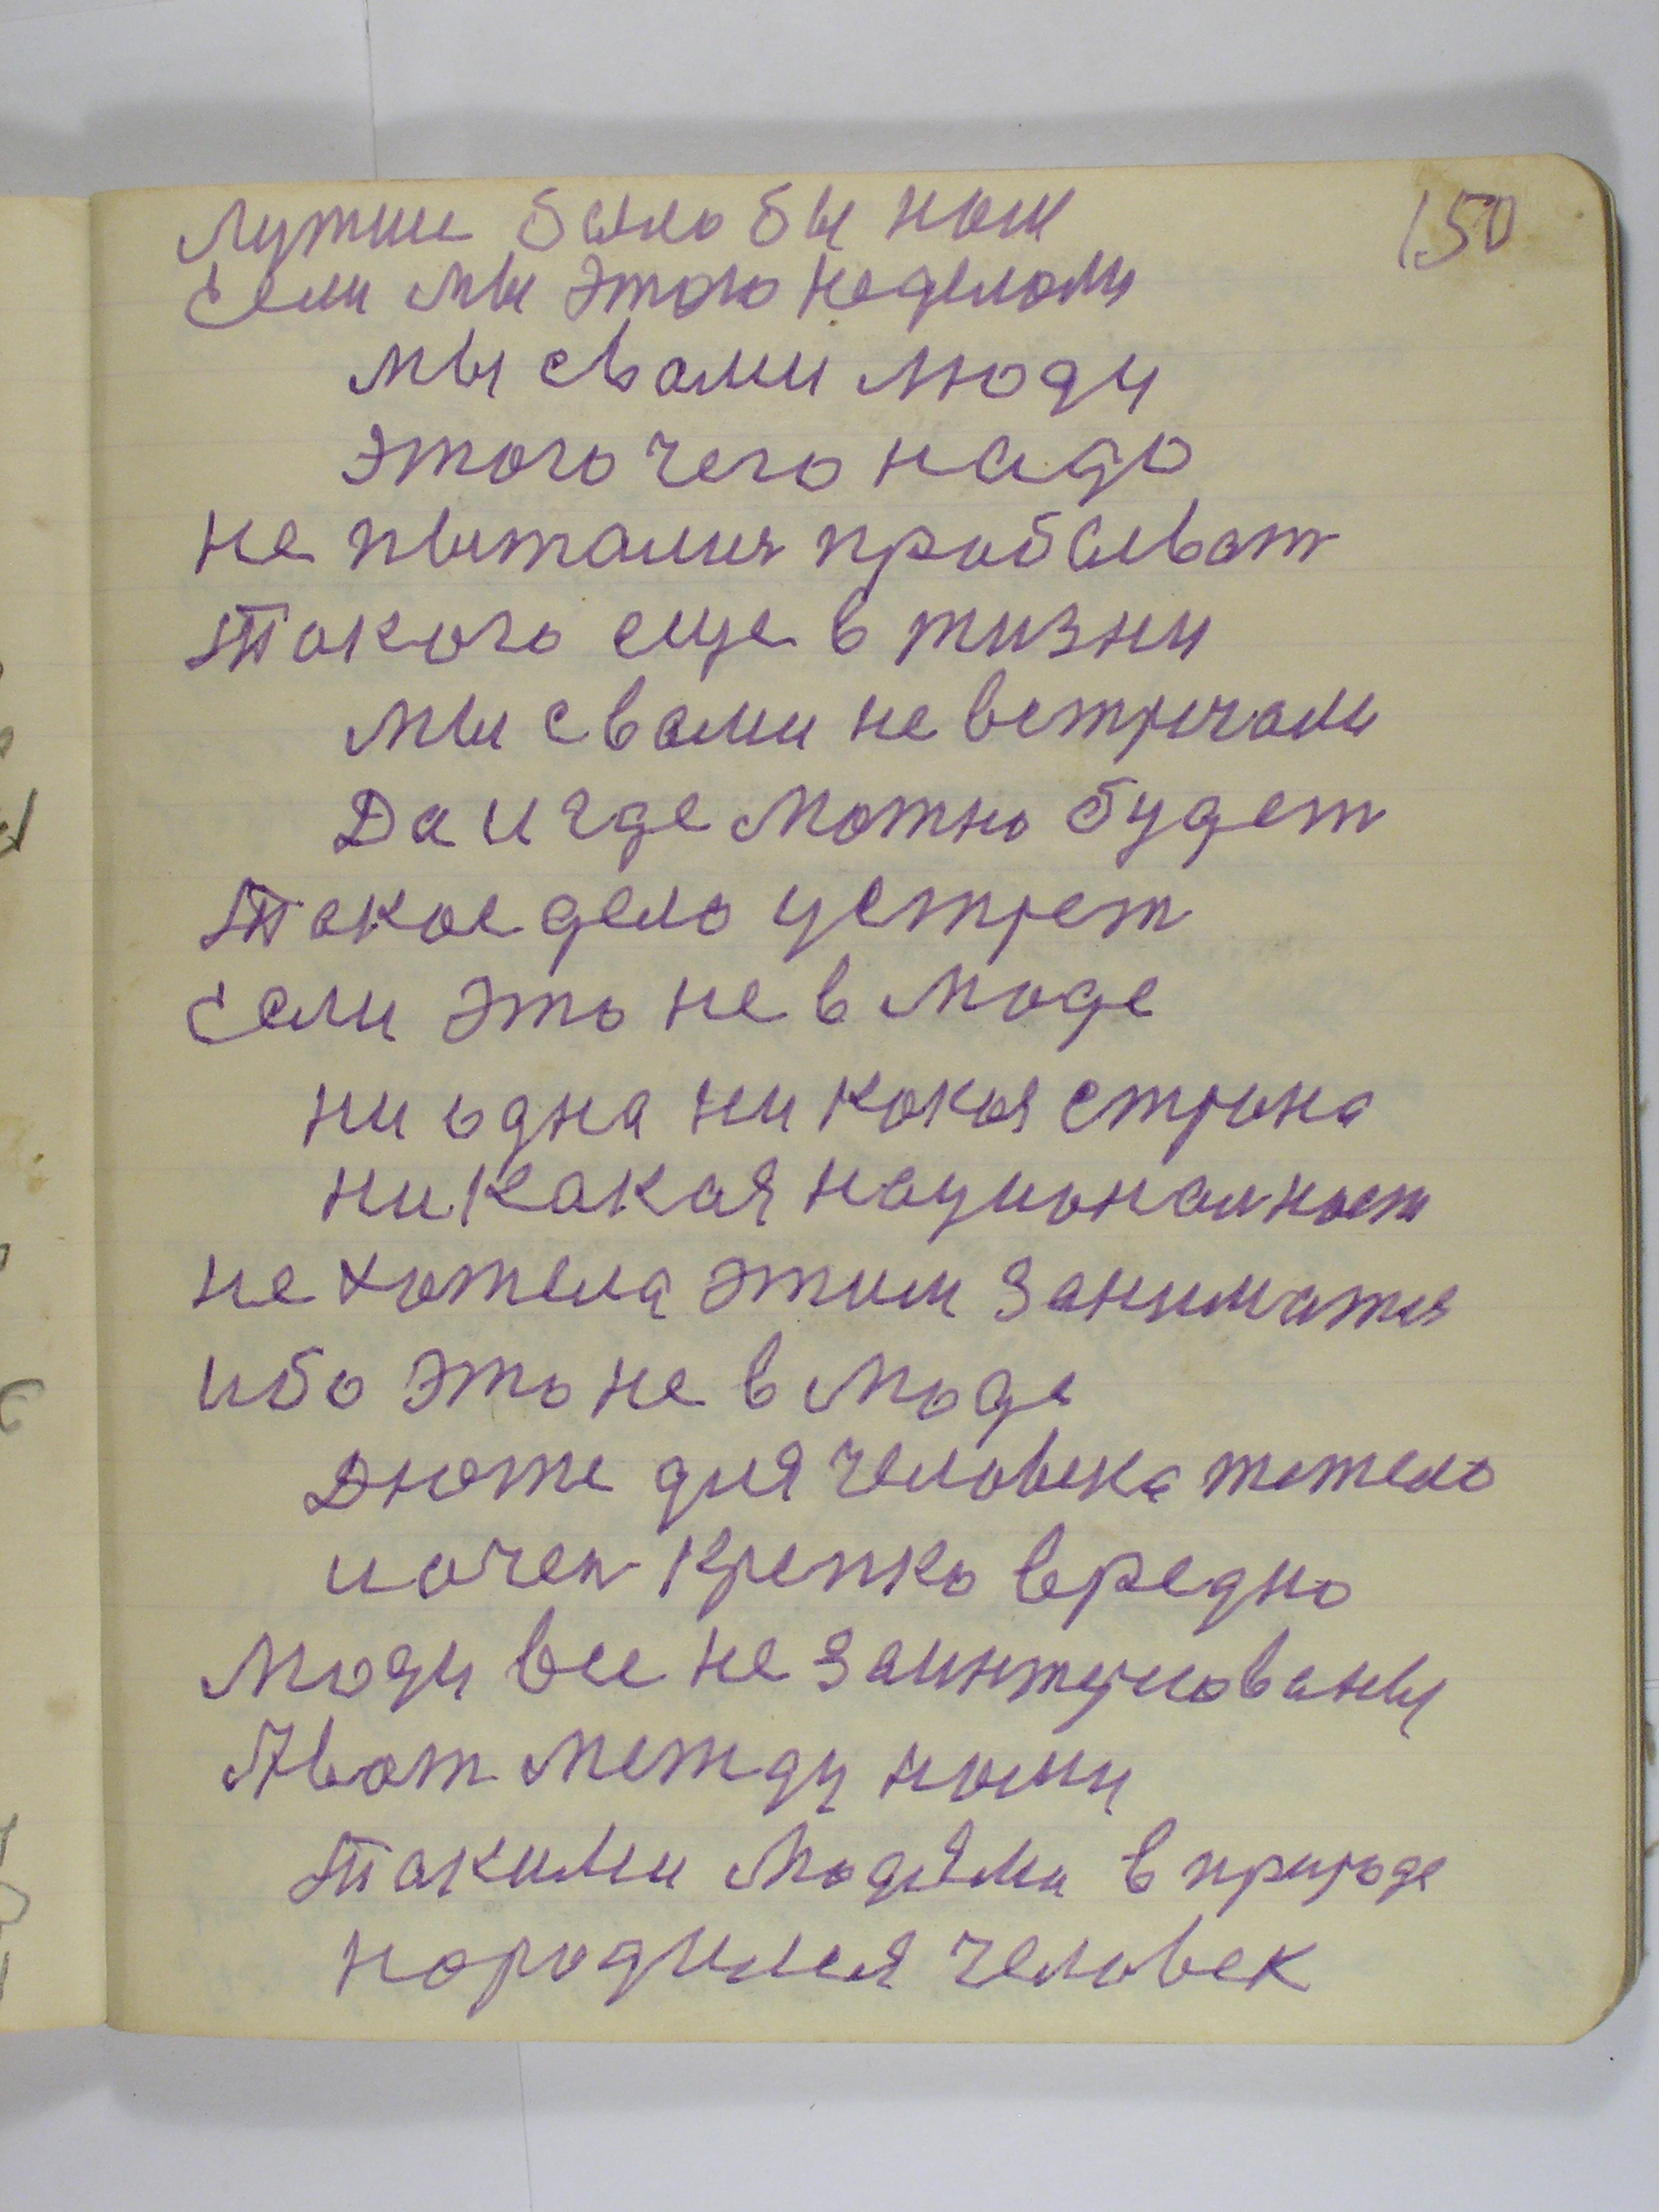 150
Лутше было бы нам
Если мы этого неделали
мы свами люди
этого чего надо
не пыталися пробыват
Такого еще в жизни
мы свами не встричали
Да и где можно будет
Такое дело устрет
Если это не в моде
ни одна ни какая страна
ни какая национальност
не хотела этим заниматся
ибо это не в моде
Дюже для человека тежело
и очен крепко вредно
Люди все не заинтирсованы
А вот между нами
Такими людями в природе
народился человек